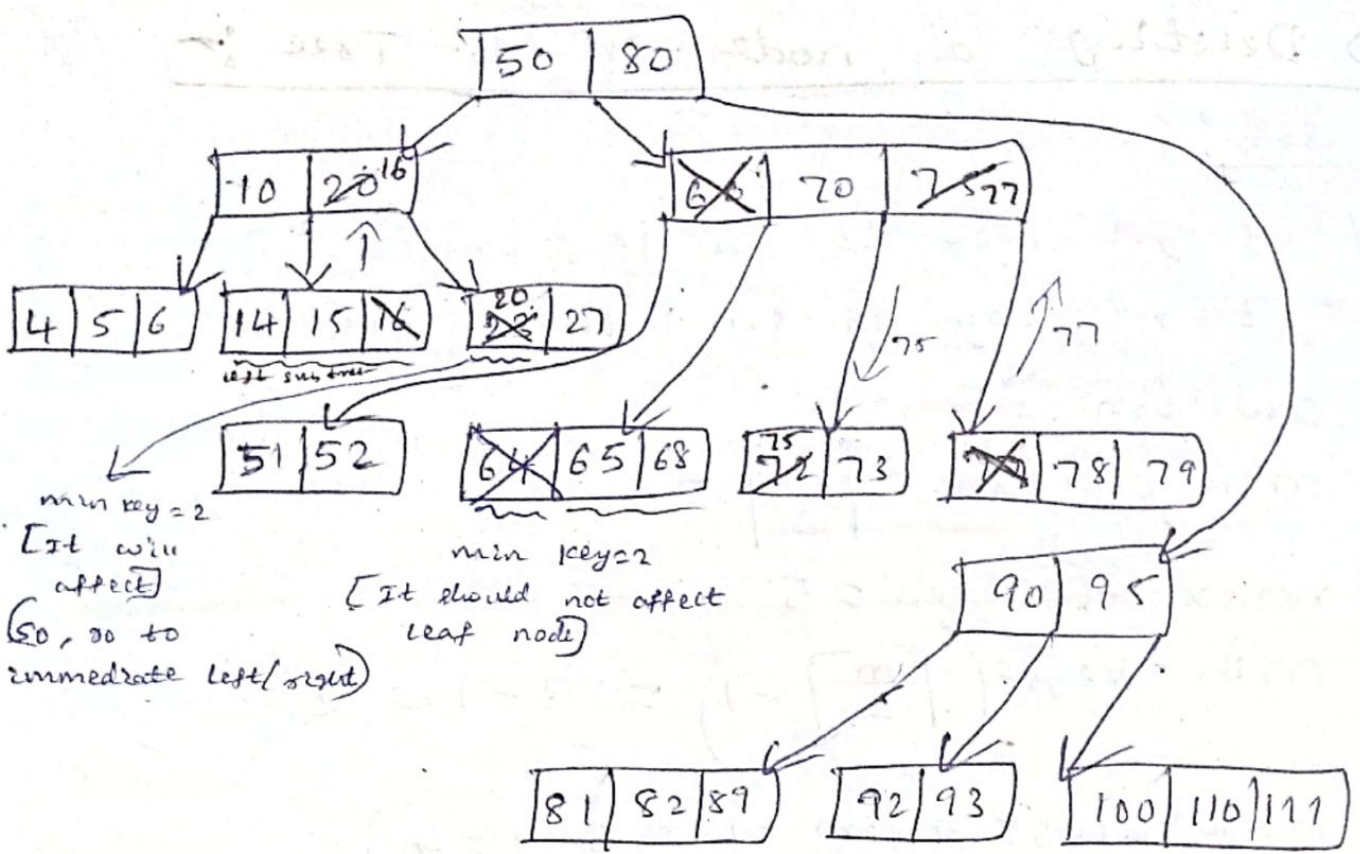 Deleting a node Tree :-
50 80
10 20 16
6 70 75 77
4 5 6
14 15 16
20
27
left subtree
75
77
51 52
64 65 68
75
72 73
78 79
min key = 2
[It will
affect]
(So, go to
immediate left/right)
min key=2
[It should not affect
leaf node]
90 95
81 82 89
92 93
100 110 111